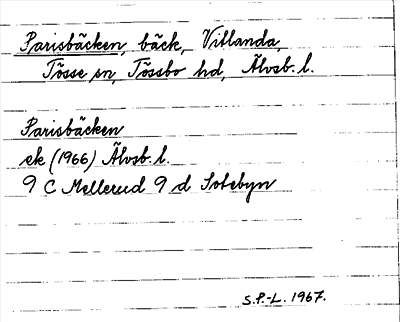 Parisbäcken, bäck, Vitlanda,
Tösse sn, Tössbo hd, Älvsb. l.
Parisbäcken
ek (1966) Älvsb. l.
9 C Mellerud 9 d Sotebyn
S.P.-L. 1967.